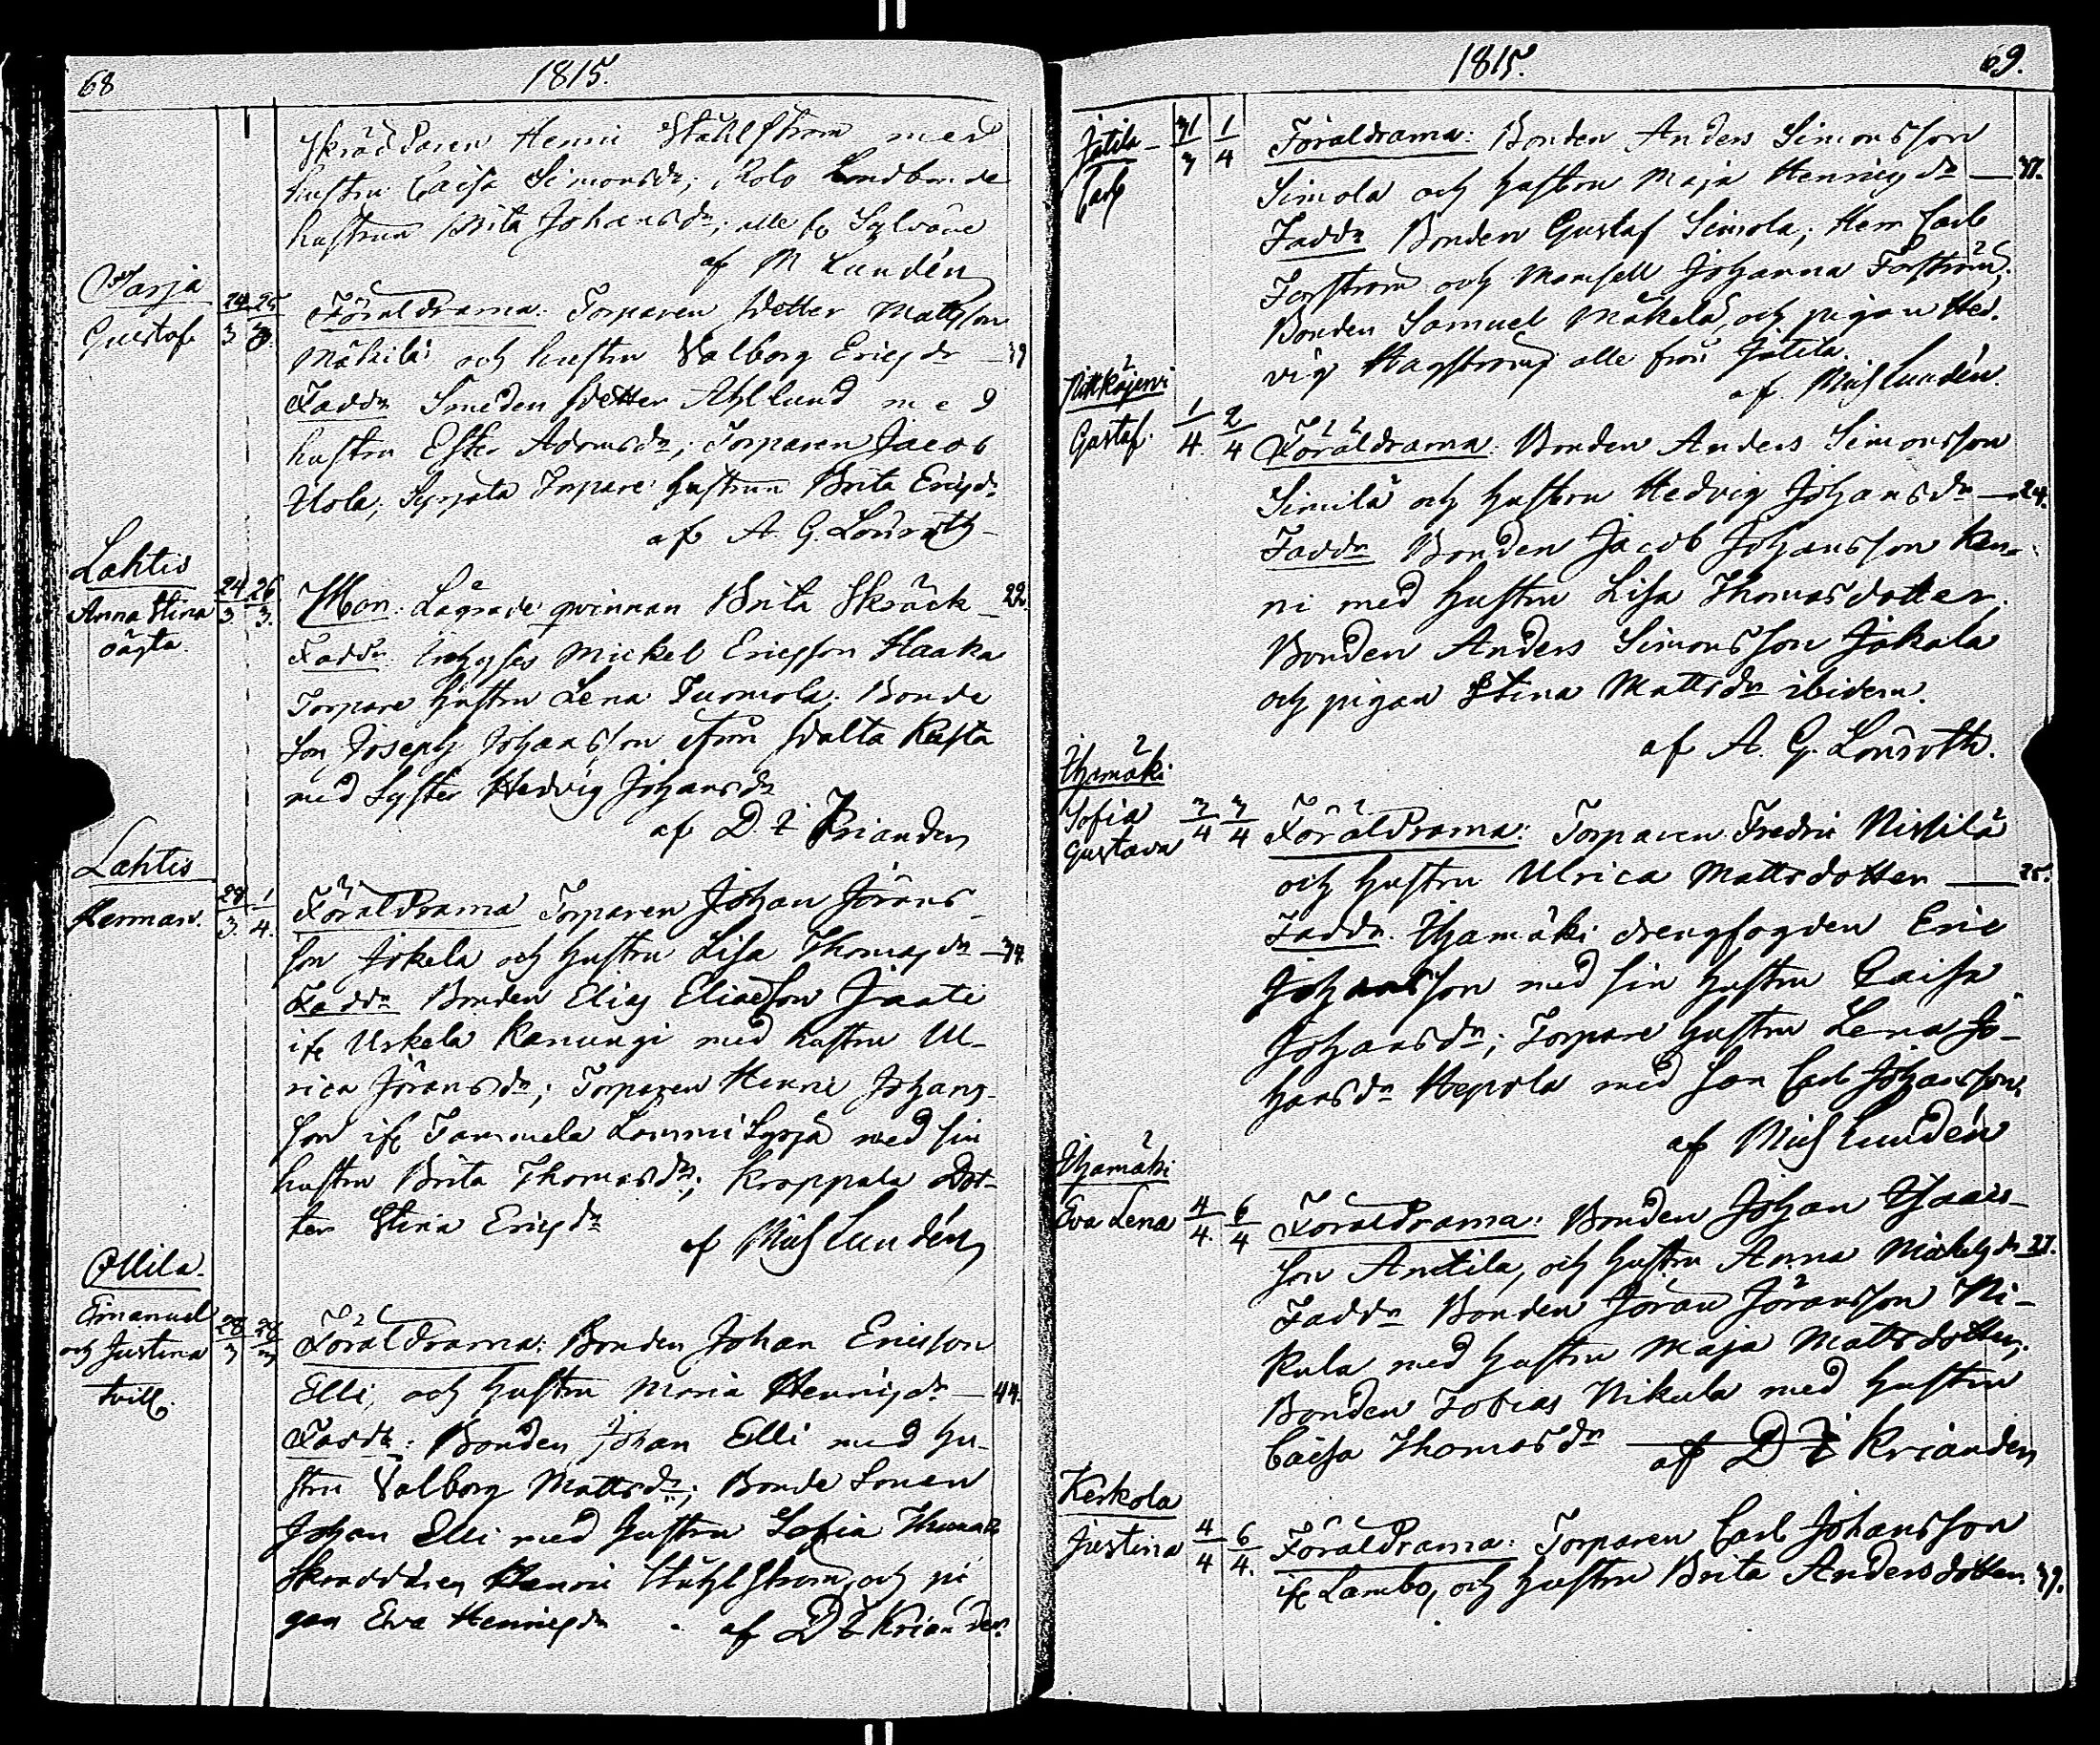 68
1815.
Skräddaren Henric Ståhlström med
hustru Caisa Simonsdr; Landbonde
hustrun Brita Johansdr; alle fr
af M Lundén
Gustaf
24 25
3 3.
Föräldrarna: Torparen Petter Mattsson
Mäkilä och hustru Valborg Ericsdr — 39
Faddr Smeden Petter Ahllund med
hustru Ester Adamsdr; Torparen Jacob
Uola; Syrjälä Torpare hustrun Brita Ericsdr
af A. G. Lönroth
Lahtis
Anna Stina
oägta.
24 26
3 3.
Mor: Lägrade qwinnan Brita Skräck — 22.
Faddr: Mickel Ericsson Haaka
Torpare hustru Lena Tuomola; Bonde
Son Joseph Johansson ifrån
med Syster Hedvig Johansdr
af D Z Krianden
Lahtis
Herman.
29 1
3. 4.
Föräldrarna Torparen Johan Jörans-
son Jokela och hustru Lisa Thomasdr — 34.
Faddr Bonden Elias Eliasson Jaati
if Urkela Kanungi med hustru Ul-
rica Jöransdr; Torparen Henric Johans-
son if Tammela Lommi Syrjä med sin
hustru Brita Thomasdr; Kroppala Dot-
ter Stina Ericsdr
af Mich Lundén
Ollila.
Emanuel
och Justina
tvill.
28 28
3 3
Föräldrarna: Bonden Johan Ericsson
Elli, och hustru Maria Henricsdr — 44.
Faddr: Bonden Johan Elli med hu-
stru Valborg Mattsdr; Bonde Sonen
Johan Elli med hustru Sofia Thomasdr
Skräddaren Henric Ståhlström, och pi
gan Eva Henricsdr af D Z Krianden
1815.
69.
Jätila
Carl
31 1
3 4
Föräldrarna: Bonden Anders Simonsson
Simola och hustru Maja Henricsdr — 31.
Faddr Bonden Gustaf Simola; Herr Carl
Forström och Mamsell Johanna Forström;
Bonden Samuel Mäkelä, och pigan Hed-
vig Hagström alle från Jätila.
af Mich Lundén.
Pitkäjervi
Gustaf.
1 2
4. 4
Föräldrarna: Bonden Anders Simonsson
Similä och hustru Hedvig Johansdr — 24.
Faddr Bonden Jacob Johansson Ken-
ni med hustru Lisa Thomasdotter;
Bonden Anders Simonsson Jokala
och pigan Stina Mattsdr ibidem.
af A. G. Lönroth.
Ihamäki
Sofia
Gustava
3 3
4 4
Föräldrarna: Torparen Fredric Niskilä
och hustru Ulrica Mattsdotter — 25.
Faddr. Ihamäki drengfogden Eric
Johansson med sin hustru Caisa
Johansdr; Torpare hustru Lena Jo-
hansdr Hepola med Son Carl Johansson
af Mich Lundén
Ihamäki
Eva Lena
4 6
4. 4
Föräldrarna: Bonden Johan Isaacs-
son Antila, och hustru Anna Michelsdr 21.
Faddr Bonden Jöran Jöransson Ni-
kula med hustru Maja Mattsdotter;
Bonden Tobias Nikula med hustru
Caisa Thomasdr — af D Z Krianden
Kerkola
Justina
4 6
4 4.
Föräldrarna: Torparen Carl Johansson
if Lambo, och hustru Brita Andersdotter. 39.